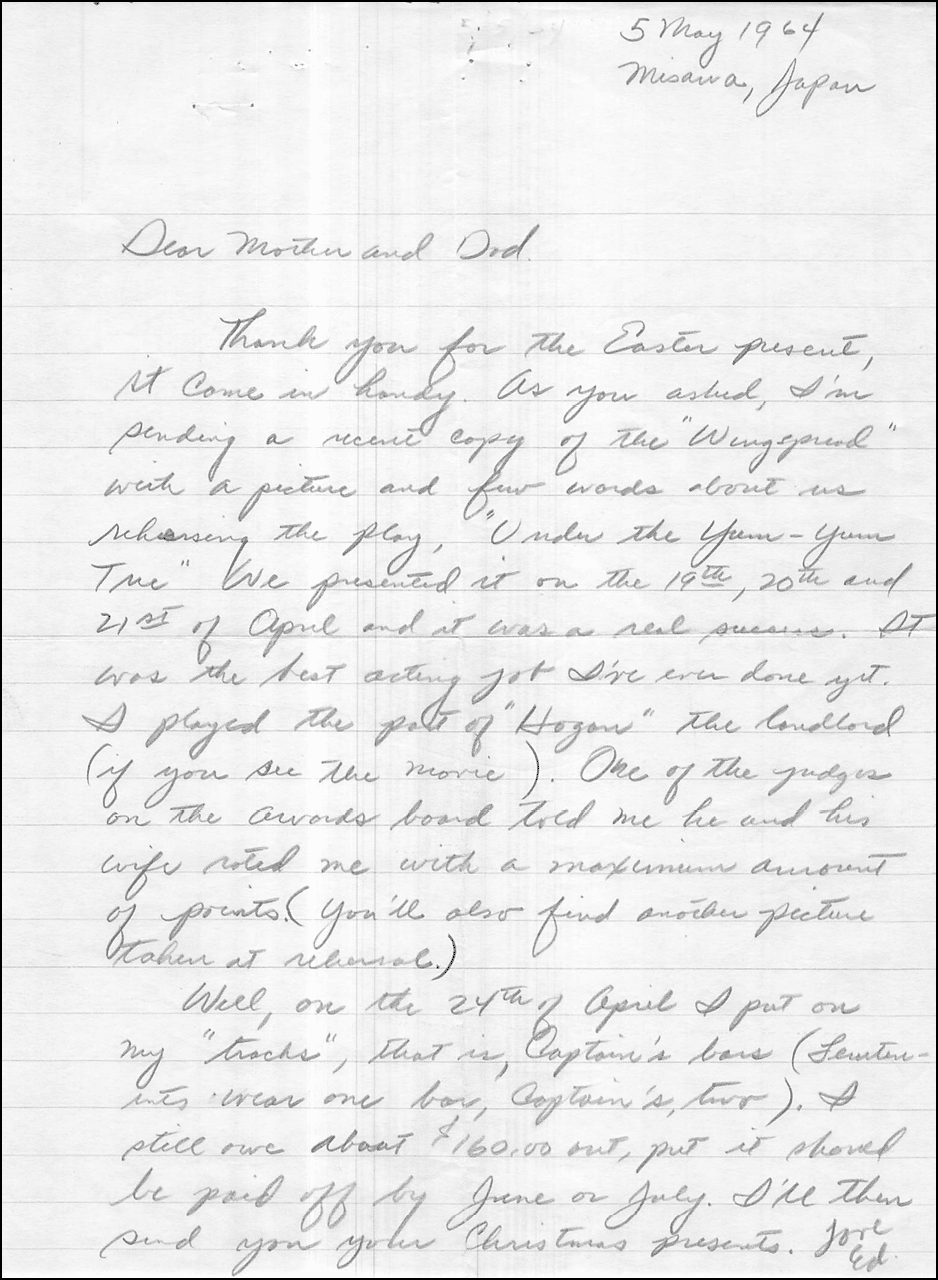 5 May 1964
Misawa, Japan
Dear Mother and Dad.
Thank you for the Easter present,
it came in handy. As you asked, I'm
sending a recent copy of the "Wingspread"
with a picture and few words about us
rehearsing the play, "Under the Yum-Yum
Tree" We presented it on the 19th, 20th and
21st of April and it was a real success. It
was the best acting job I've ever done yet.
I played the part of "Hogan" the landlord
(if you see the movie). One of the judges
on the awards board told me he and his
wife rated me with a maximum amount
of points. (You'll also find another picture
taken at rehersal.)
Well, on the 24th of April I put on
my "tracks", that is, Captain's bars (Leuten-
ints wear one bar, Captain's, two). I
still owe about $160.00 out, put it should
be paid off by June or July. I'll then
send you your Christmas presents. Love
Ed.